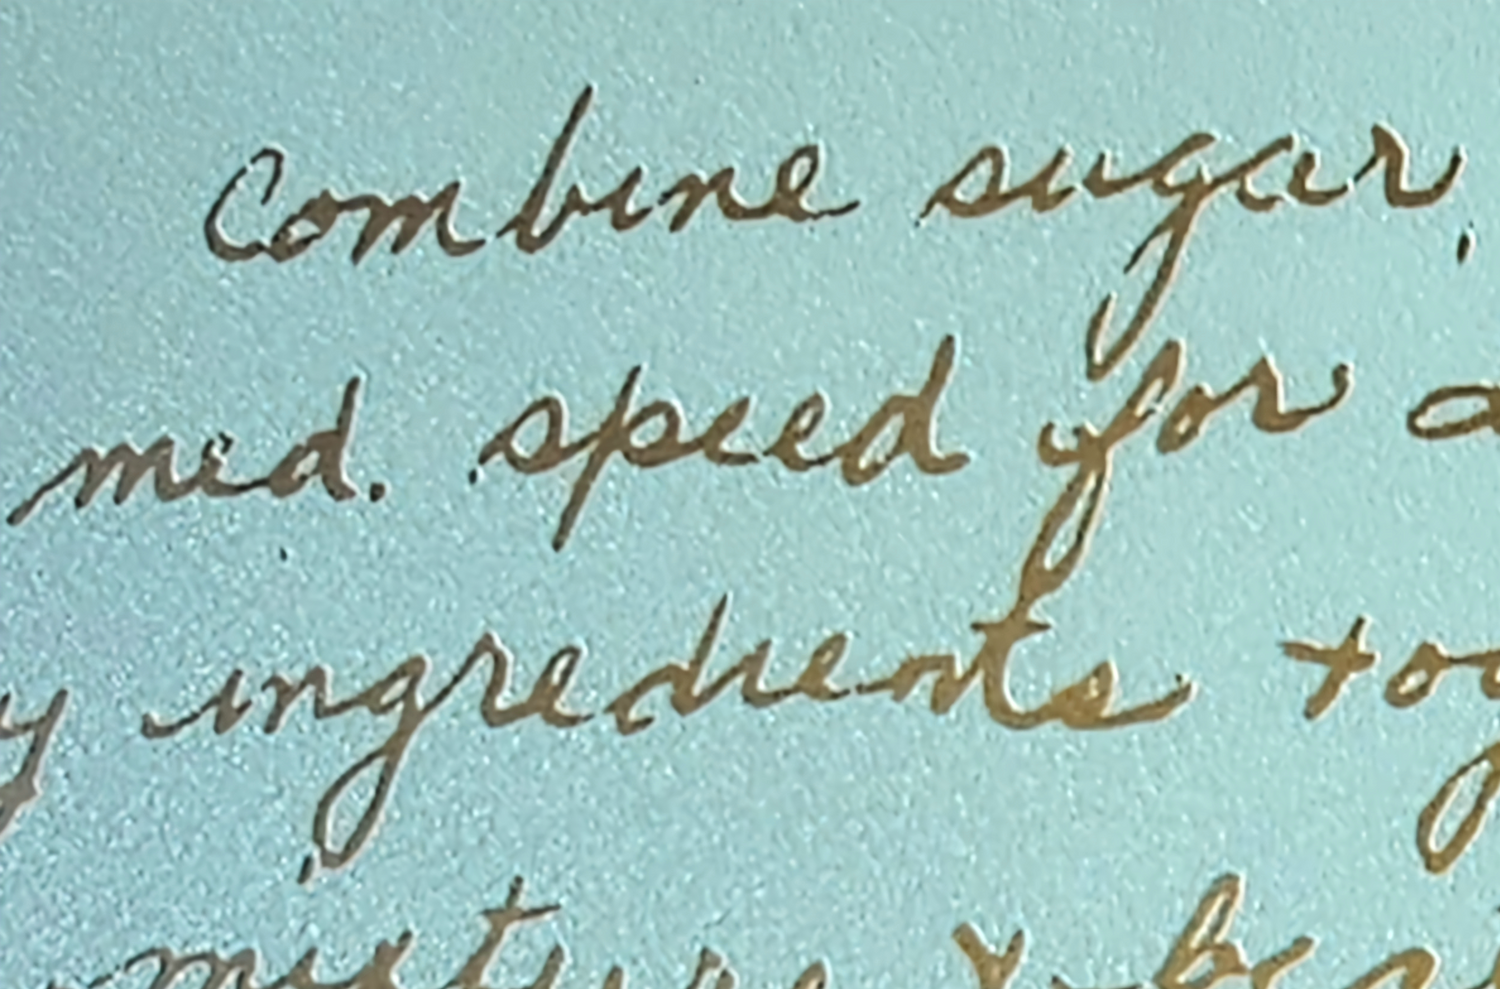 Combine sugar,
med. speed for a
y ingredients tog
mixture & bea